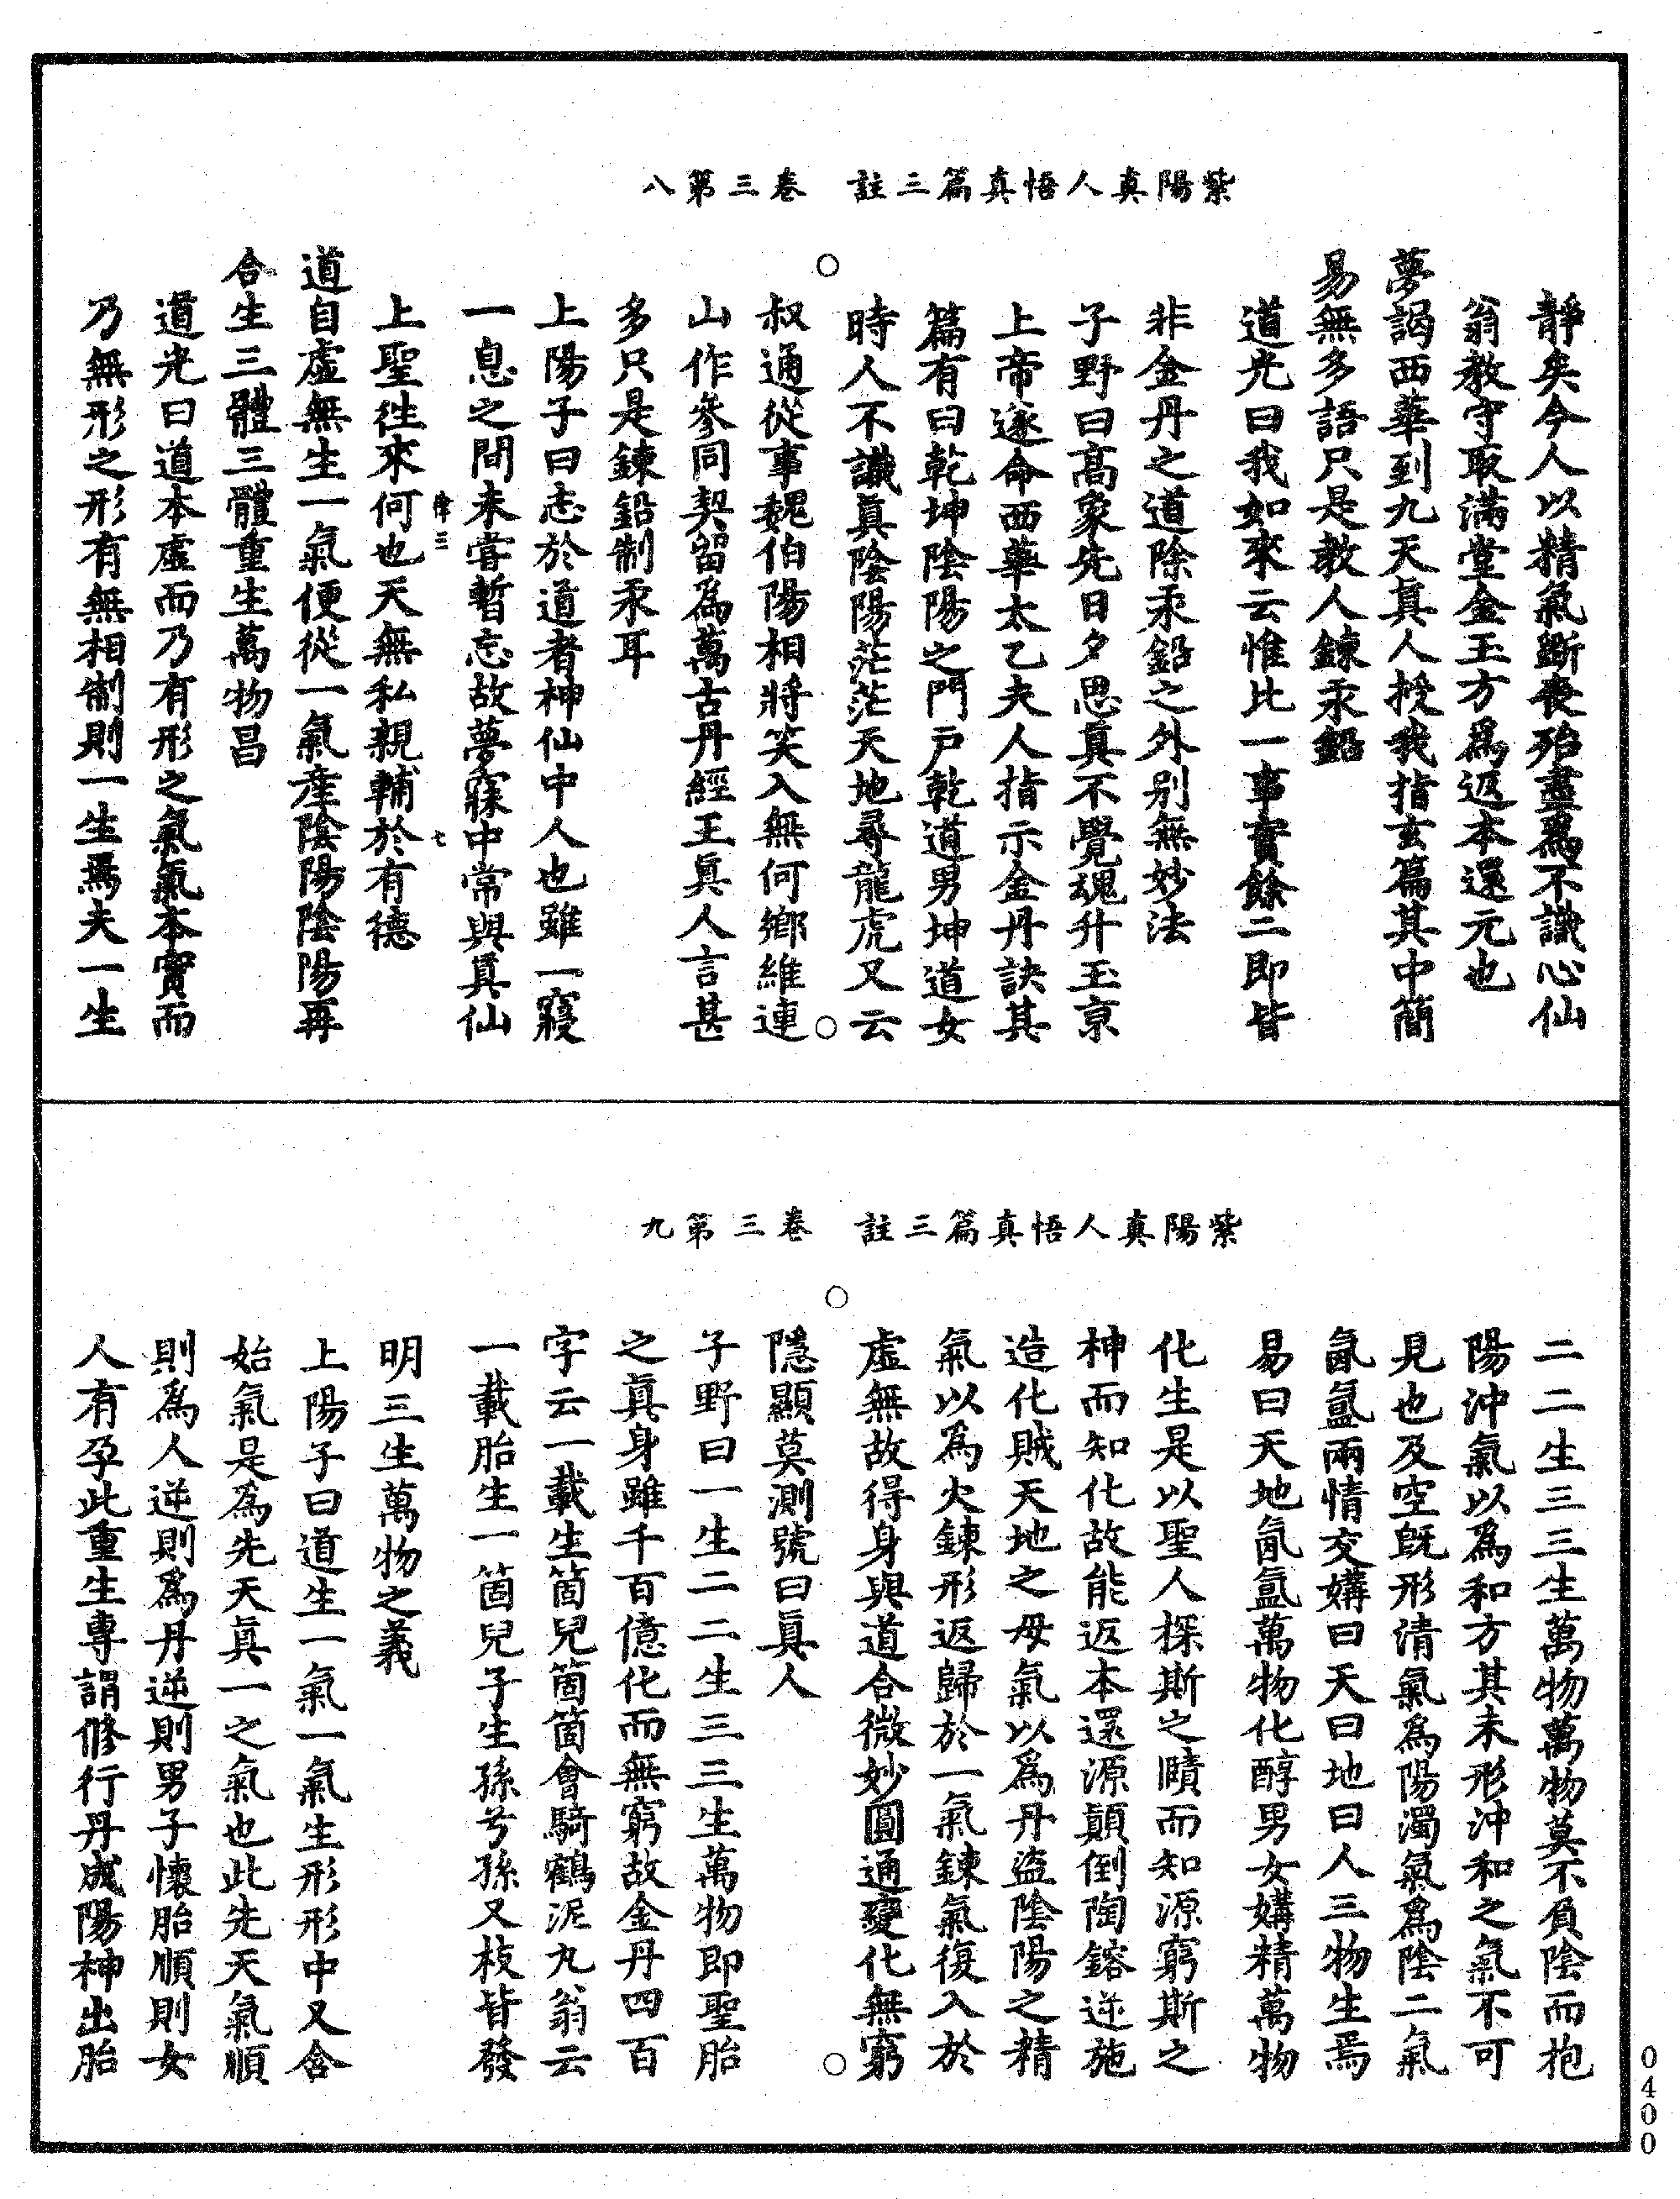 紫陽真人悟真篇三註　卷三第八
靜矣今人以精氣斷喪殆盡爲不識心仙
翁教守取滿堂金玉方爲返本還元也
夢謁西華到九天真人授我指玄篇其中簡
易無多語只是教人鍊汞鉛
道光曰我如來云惟比一事實餘二即皆
非金丹之道除汞鉛之外别無妙法
子野曰高象先日夕思真不覺魂升玉京
上帝遂命西華太乙夫人指示金丹訣其
篇有曰乾坤陰陽之門戶乾道男坤道女
時人不識真陰陽茫茫天地尋龍虎又云
叔通從事魏伯陽相將笑入無何鄉維連
山作參同契留爲萬古丹經王真人言甚
多只是鍊鉛制汞耳
上陽子曰志於道者神仙中人也雖一寢
一息之間未嘗暫忘故夢寐中常與真仙
律三　七
上聖往來何也天無私親輔於有德
道自虛無生一氣便從一氣產陰陽陰陽再
合生三體三體重生萬物昌
道光曰道本虛而乃有形之氣氣本實而
乃無形之形有無相制則一生焉夫一生
紫陽真人悟真篇三註　卷三第九
二二生三三生萬物萬物莫不負陰而抱
陽沖氣以為和方其未形沖和之氣不可
見也及空既形清氣爲陽濁氣爲陰二氣
氤氳兩情交媾曰天曰地曰人三物生焉
易曰天地氤氳萬物化醇男女媾精萬物
化生是以聖人探斯之賾而知源窮斯之
神而知化故能返本還源顛倒陶鎔逆施
造化賊天地之母氣以爲丹盜陰陽之精
氣以為火鍊形返歸於一氣鍊氣復入於
虛無故得身與道合微妙圓通變化無窮
隱顯莫測號曰真人
子野曰一生二二生三三生萬物即聖胎
之真身雖千百億化而無窮故金丹四百
字云一載生箇兒箇箇會騎鶴泥丸翁云
一載胎生一箇兒子生孫兮孫又枝皆發
明三生萬物之義
上陽子曰道生一氣一氣生形形中又含
始氣是為先天真一之氣也此先天氣順
則爲人逆則爲丹逆則男子懷胎順則女
人有孕此重生專謂修行丹成陽神出胎
0400